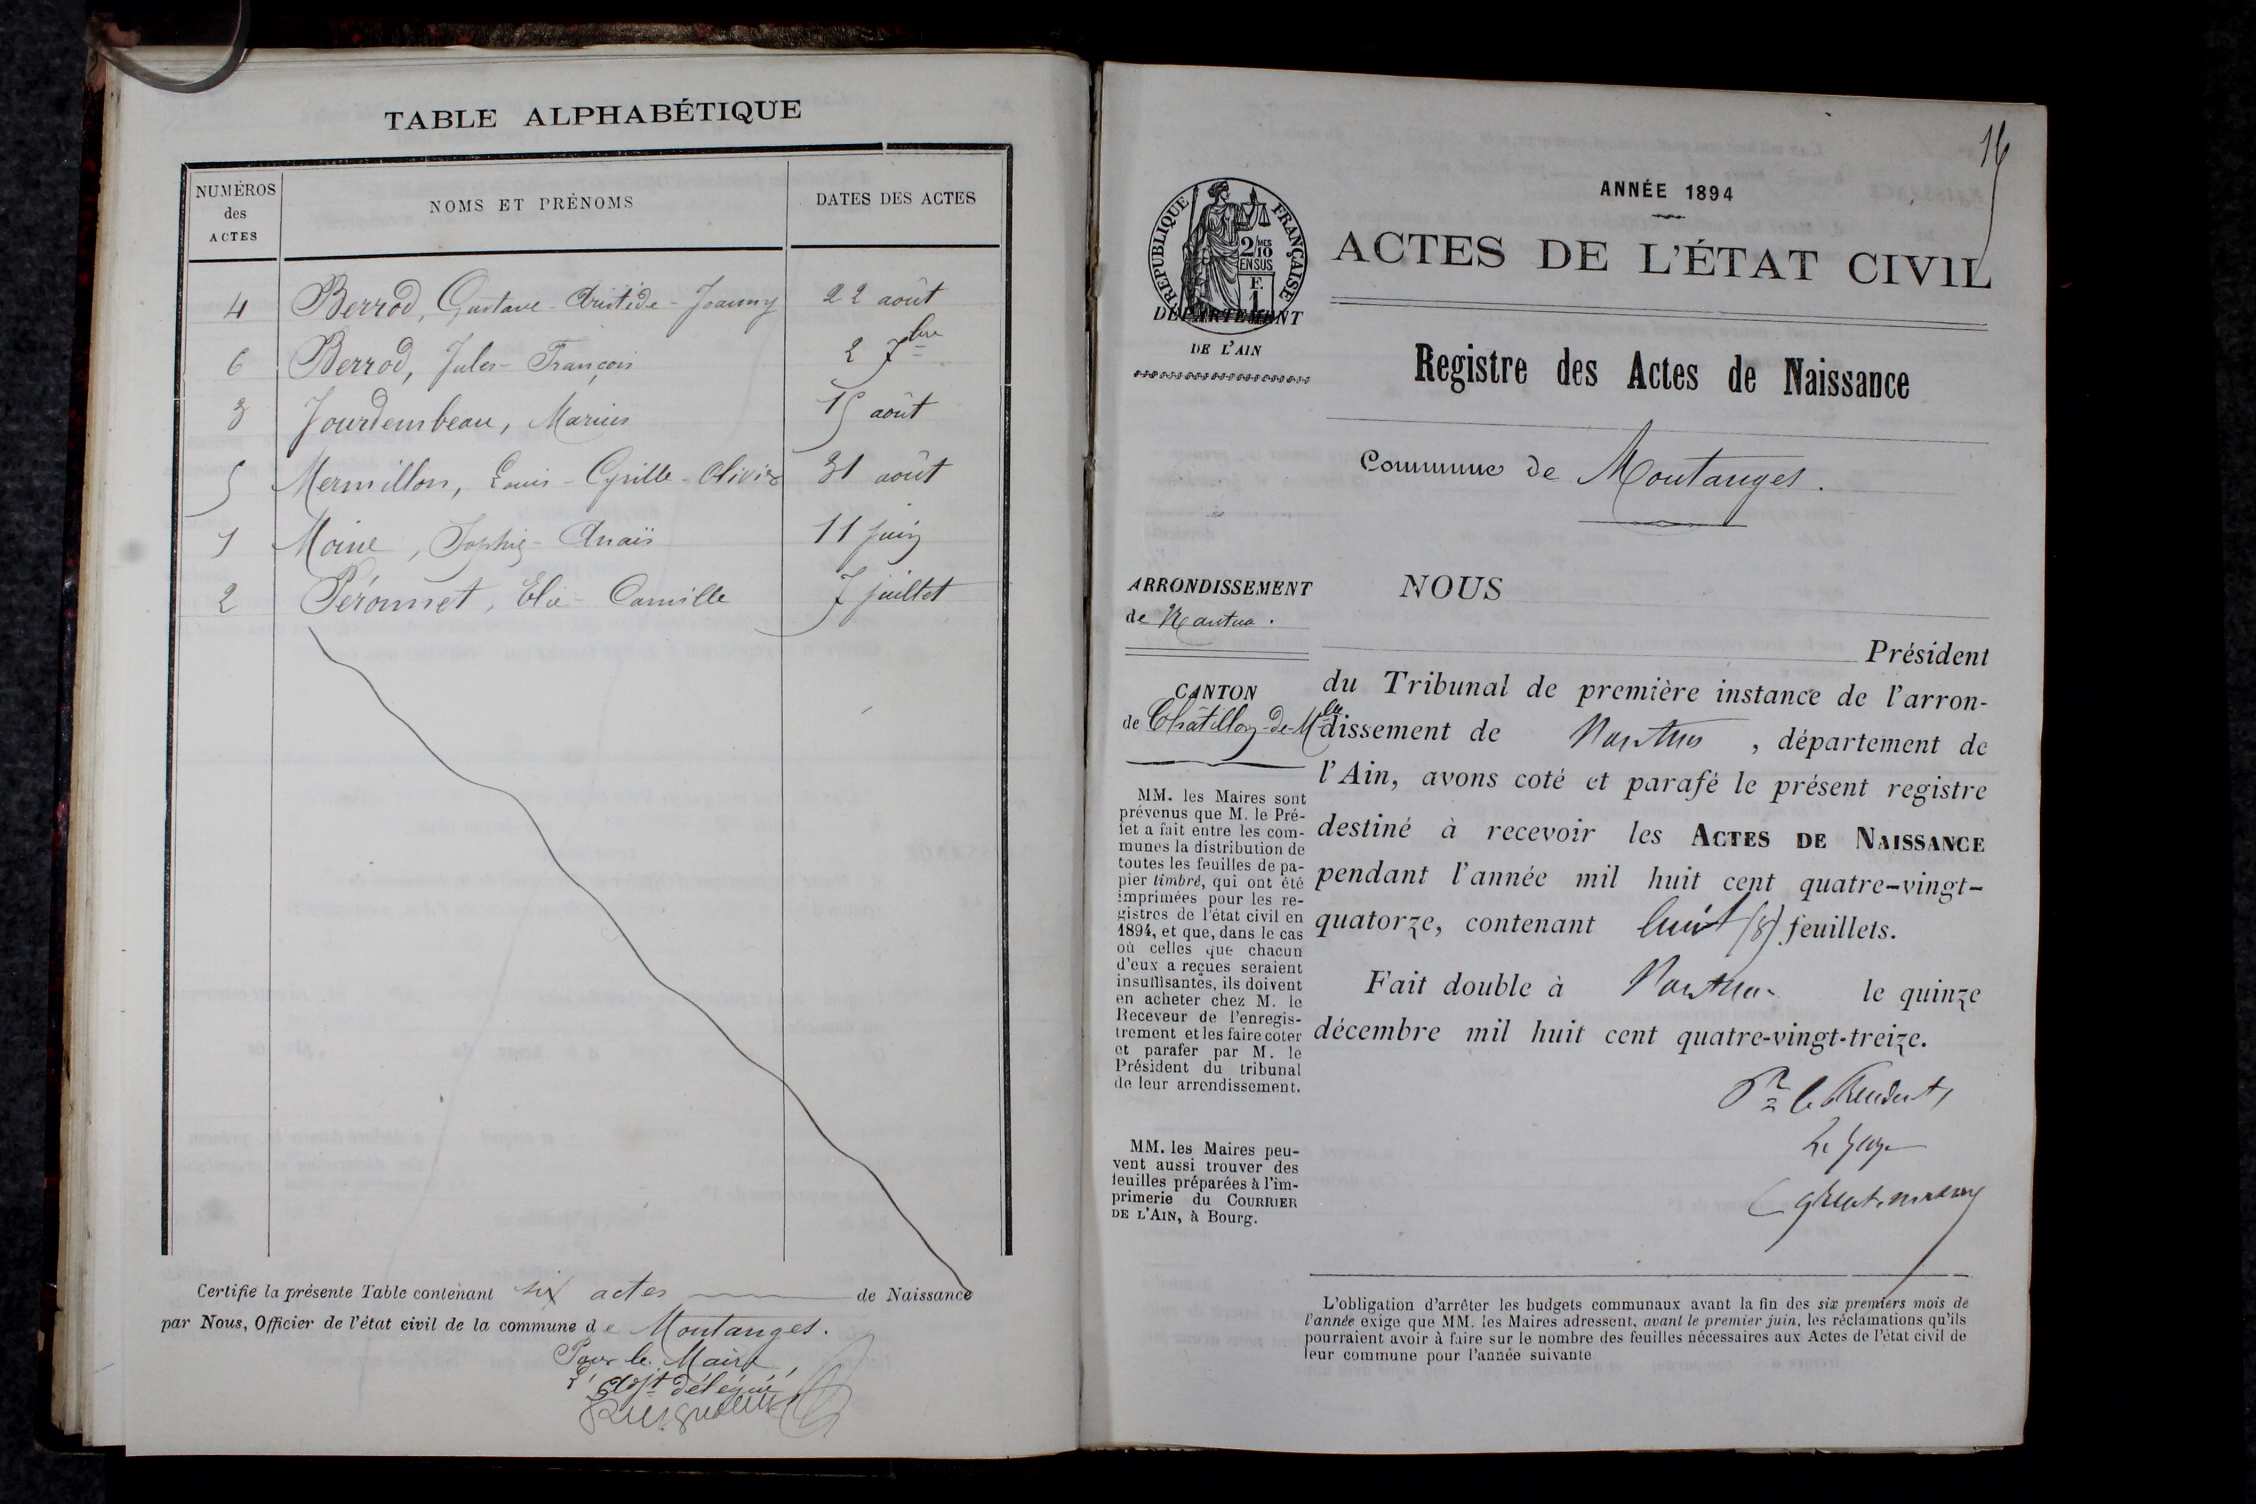 TABLE ALPHABÉTIQUE
NUMÉROS
des
ACTES
NOMS ET PRÉNOMS
DATES DES ACTES
4 Berrod, Gustave-Aristide-Joanny 22 août
6 Berrod, Jules-François 2 7bre
3 Jourdembeau, Marius 15 août
5 Mermillon, Louis-Cyrille-Olivier 31 août
1 Moine, Sophie-Anaïs 11 juin
2 Péronnet, Elie-Camille 7 juillet
Certifié la présente Table contenant six actes de Naissance
par Nous, Officier de l'état civil de la commune de Montanges.
Pour le Maire,
l'adjt délégué,
16
RÉPUBLIQUE FRANÇAISE
2/10 MES
EN SUS
F.
1
DÉPARTEMENT
DE L'AIN
ANNÉE 1894
ACTES DE L'ÉTAT CIVIL
Registre des Actes de Naissance
Commune de Montanges.
ARRONDISSEMENT
de Nantua.
CANTON
de Châtillon-de-Mlle
MM. les Maires sont
prévenus que M. le Pré-
fet a fait entre les com-
munes la distribution de
toutes les feuilles de pa-
pier timbré, qui ont été
imprimées pour les re-
gistres de l'état civil en
1894, et que, dans le cas
où celles que chacun
d'eux a reçues seraient
insuffisantes, ils doivent
en acheter chez M. le
Receveur de l'enregis-
trement et les faire coter
et parafer par M. le
Président du tribunal
de leur arrondissement.
MM. les Maires peu-
vent aussi trouver des
feuilles préparées à l'im-
primerie du COURRIER
DE L'AIN, à Bourg.
NOUS
Président
du Tribunal de première instance de l'arron-
dissement de Nantua, département de
l'Ain, avons coté et parafé le présent registre
destiné à recevoir les ACTES DE NAISSANCE
pendant l'année mil huit cent quatre-vingt-
quatorze, contenant huit (8) feuillets.
Fait double à Nantua le quinze
décembre mil huit cent quatre-vingt-treize.
Pr le Président,
Le Juge
L'obligation d'arrêter les budgets communaux avant la fin des six premiers mois de
l'année exige que MM. les Maires adressent, avant le premier juin, les réclamations qu'ils
pourraient avoir à faire sur le nombre des feuilles nécessaires aux Actes de l'état civil de
leur commune pour l'année suivante